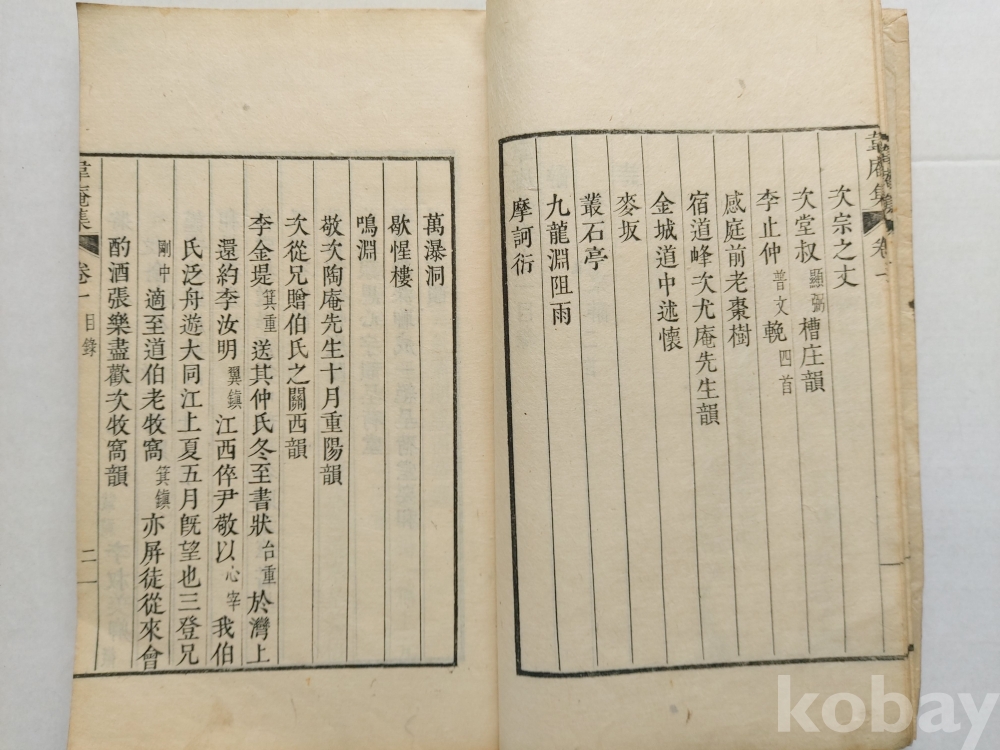 韋庵集 卷一
次宗之丈
次堂叔 顯弼 槽庄韻
李止仲 普文 輓 四首
感庭前老棗樹
宿道峰次尤庵先生韻
金城道中述懷
麥坂
叢石亭
九龍淵阻雨
摩訶衍
萬瀑洞
歇惺樓
鳴淵
敬次陶庵先生十月重陽韻
次從兄贈伯氏之關西韻
李金堤 箕重 送其仲氏冬至書狀 台重 於灣上
還約李汝明 翼鎮 江西倅尹敬以 心宰 我伯
氏泛舟遊大同江上夏五月旣望也三登兄
剛中 適至道伯老牧窩 箕鎮 亦屏徒從來會
酌酒張樂盡歡次牧窩韻
韋庵集 卷一 目錄 二
kobay